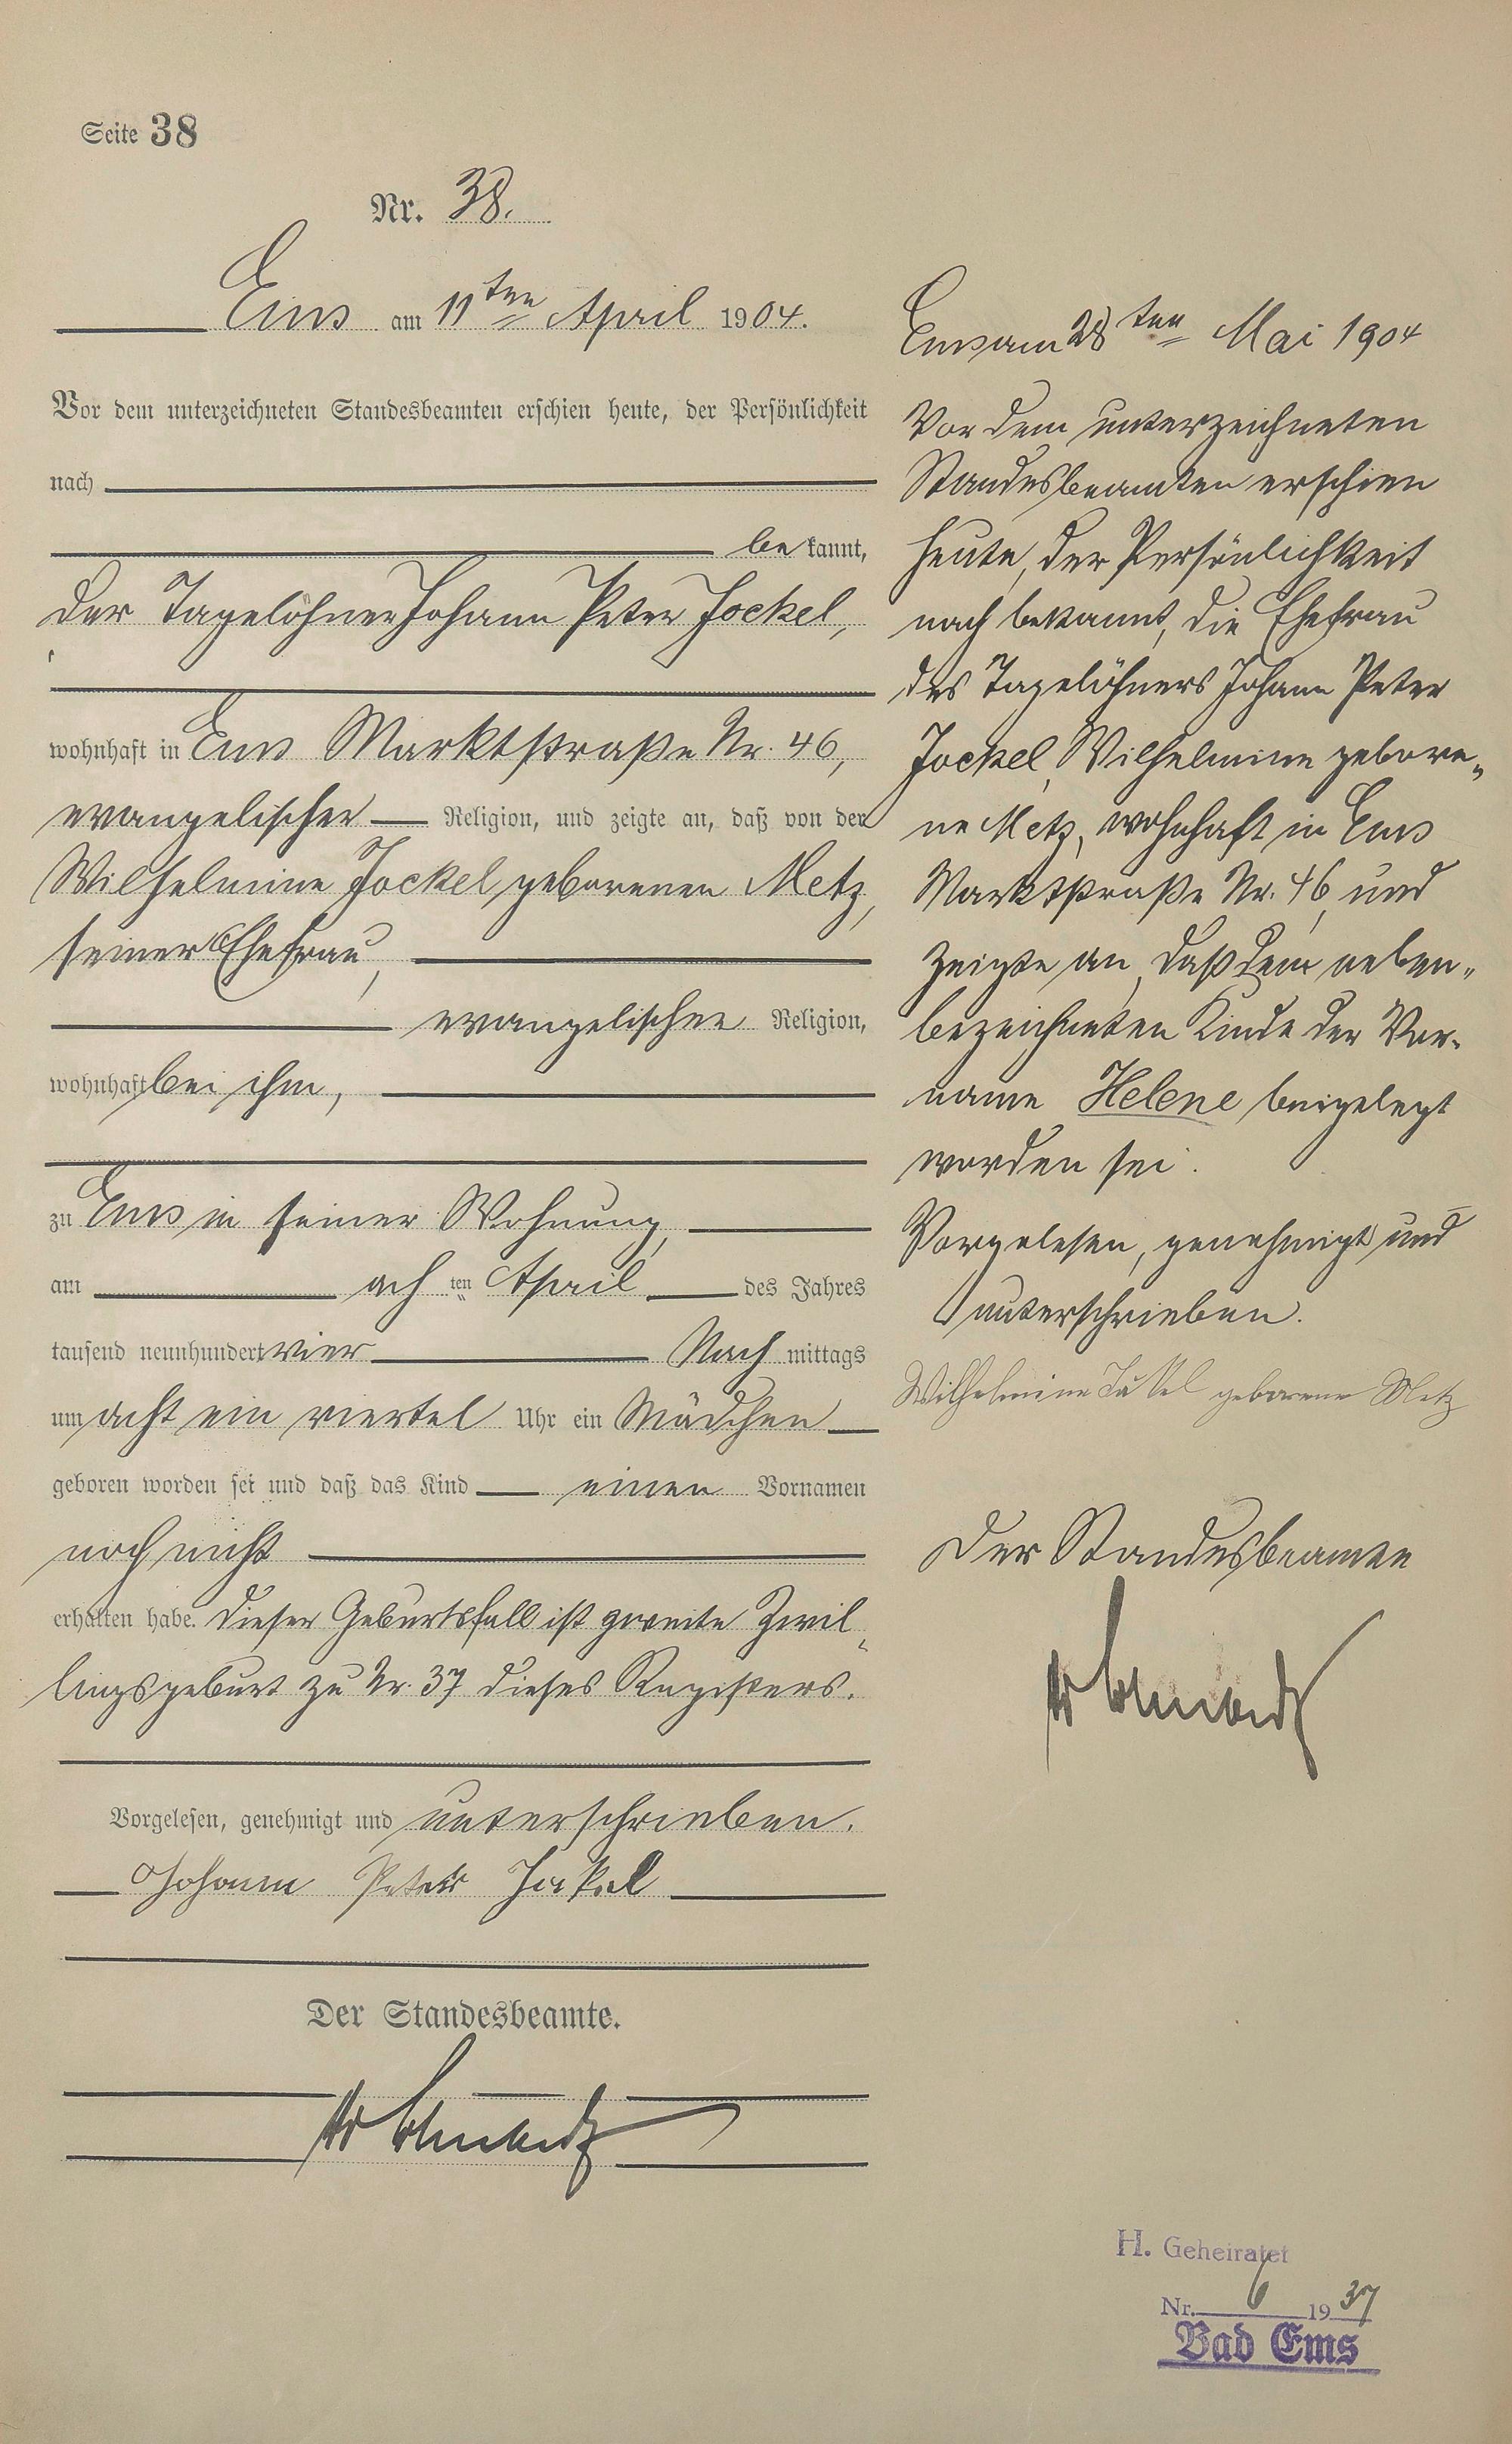 Seite 38
Nr. 38.
Ems am 11ten April 1904.
Vor dem unterzeichneten Standesbeamten erschien heute, der Persönlichkeit
nach
be kannt,
der Tagelöhner Johann Peter Jockel,
wohnhaft in Ems Marktstraße Nr. 46,
evangelischer Religion, und zeigte an, daß von der
Wilhelmine Jockel geborenen Metz,
seiner Ehefrau,
evangelischer Religion,
wohnhaft bei ihm,
zu Ems in seiner Wohnung,
am ach ten April des Jahres
tausend neunhundert vier Nach mittags
um acht ein viertel Uhr ein Mädchen
geboren worden sei und daß das Kind einen Vornamen
noch nicht
erhalten habe. Dieser Geburtsfall ist zweite Zwil-
lingsgeburt zu Nr. 37 dieses Registers.
Vorgelesen, genehmigt und unterschrieben.
Johann Peter Jockel
Der Standesbeamte.
Ems am 28ten Mai 1904
Vor dem unterzeichneten
Standesbeamten erschien
heute, der Persönlichkeit
nach bekannt, die Ehefrau
des Tagelöhners Johann Peter
Jockel, Wilhelmine gebore-
ne Metz, wohnhaft in Ems
Marktstraße Nr. 46, und
zeigte an, daß dem neben-
bezeichneten Kinde der Vor-
name Helene beigelegt
worden sei.
Vorgelesen, genehmigt und
unterschrieben.
Wilhelmine geborene Metz
Der Standesbeamte
H. Geheiratet
Nr. 6 1937
Bad Ems